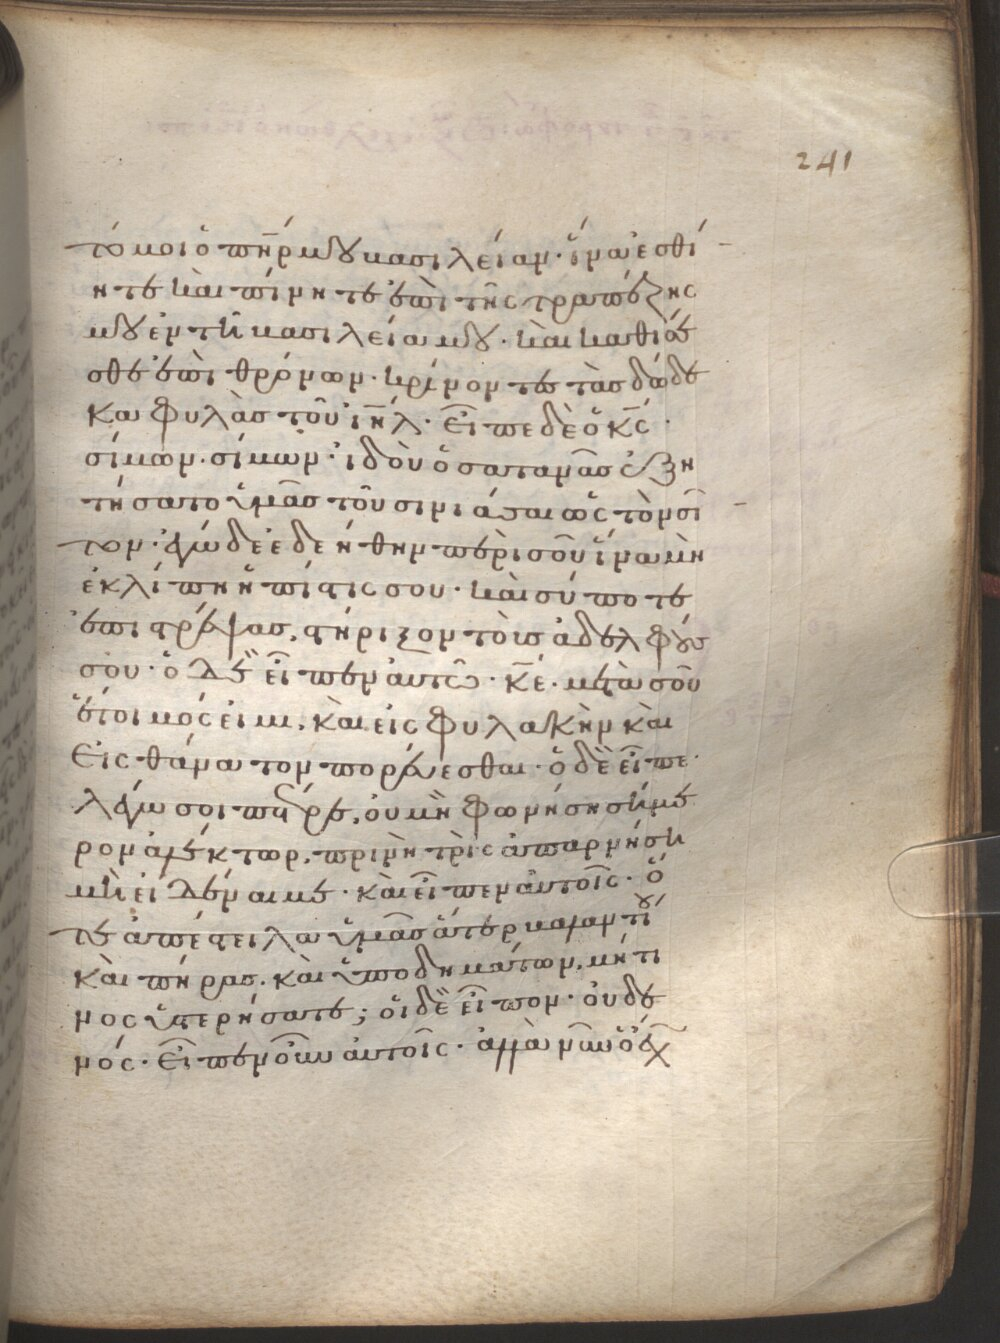 241
τό μοι ὁ πη̅ρ μου βασιλείαν· ἵνα ἐσθί
ητε καὶ πίνητε ἐπὶ τῆς τραπέζης
μου ἐν τῆ βασιλεία μου· καὶ καθίσε
σθε ἐπὶ θρόνων· κρίνοντες τὰς δώδε
κα φυλὰσ τοῦ ιη̅λ· Εἶπε δὲ ὁ κς̅·
σίμων· σίμων· ἰδοὺ ὁ σατανᾶσ ἐξη
τήσατο ὑμᾶσ τοῦ σινιάσαι ὡς τὸν σῖ
τον· ἐγὼ δὲ ἐδεήθην περὶ σοῦ ἵνα μὴ
ἐκλίπη ἡ πίστις σου· καὶ σύ ποτε
ἐπιστρέψασ, στήριξον τοὺσ ἀδελφούσ
σου· ὁ δὲ εἶπεν αὐτῶ· κε̅· μετὰ σοῦ
ἕτοιμός εἰμι, καὶ εἰς φυλακὴν καὶ
Εἰς θάνατον πορεύεσθαι· ὁ δὲ εἶπε·
λέγω σοι πέτρε, οὐ μὴ φωνήση σήμε
ρον ἀλέκτωρ, πρὶν ἢ τρὶς ἀπαρνήση
μὴ εἰδέναι με· καὶ εἶπεν αὐτοῖς· ὅ
τε ἀπέστειλα ὑμᾶσ ἄτερ βαλαντί
καὶ πήρασ· καὶ ὑποδημάτων, μή τι
νος ὑστερήσατε; οἱ δὲ εἶπον· οὐδε
νός· Εἶπεν οὖν αὐτοῖς· ἀλλὰ νῦν ὁ ἔχ